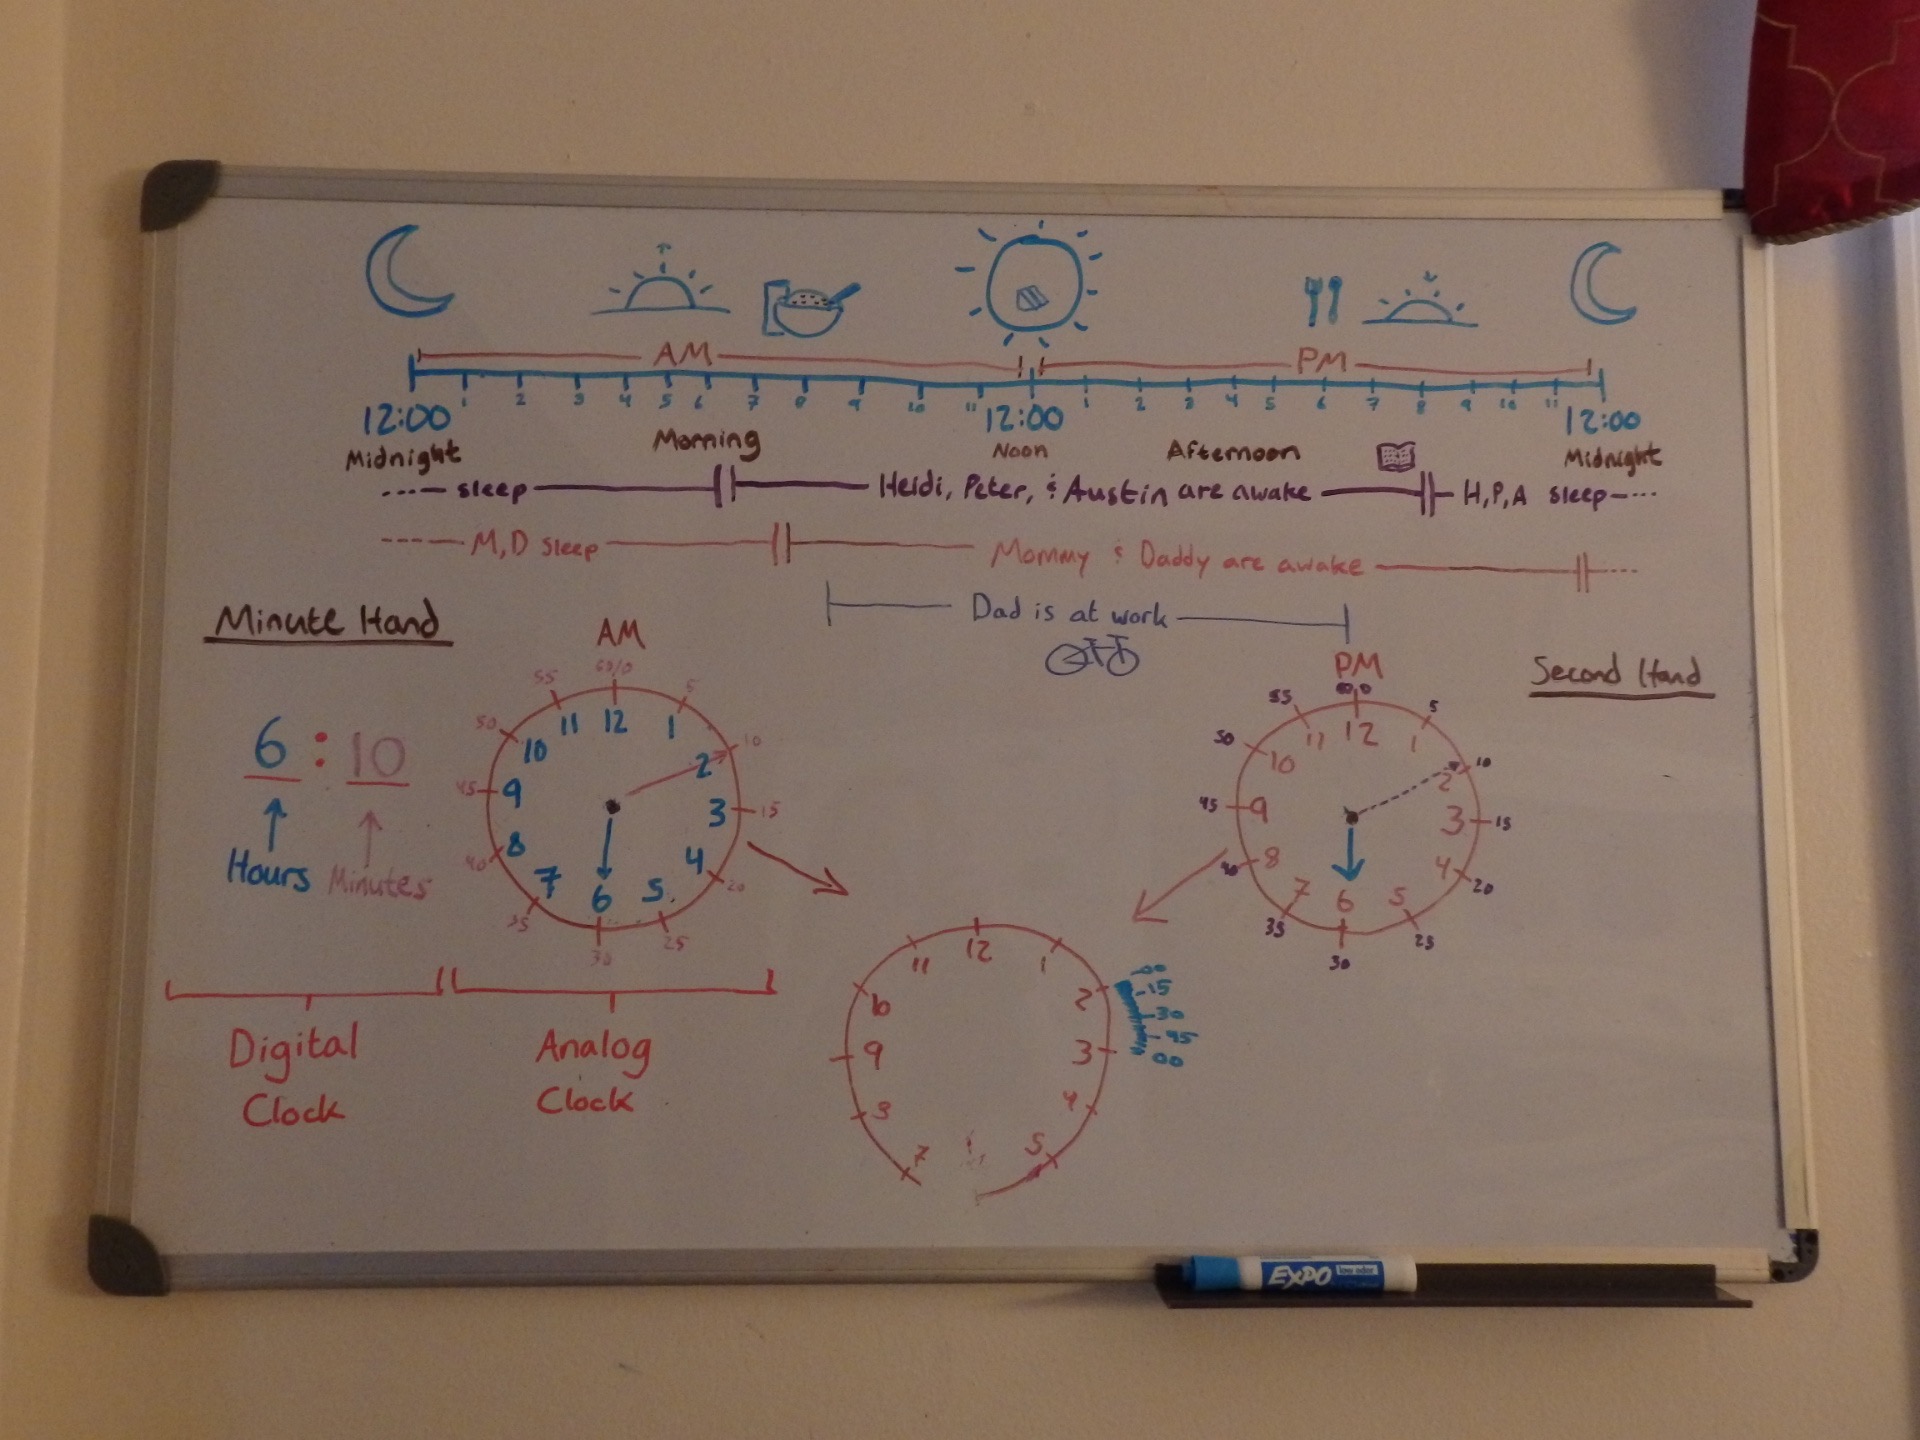 AM PM
1 2 3 4 5 6 7 8 9 10 11 1 2 3 4 5 6 7 8 9 10 11
12:00 12:00 12:00
Midnight Morning Noon Afternoon Midnight
sleep Heidi, Peter, & Austin are awake H,P,A sleep
M,D sleep Mommy & Daddy are awake
Dad is at work
Minute Hand
6:10
Hours Minutes
AM
60/0 5 10 15 20 25 30 35 40 45 50 55
12 1 2 3 4 5 6 7 8 9 10 11
PM
60/0 5 10 15 20 25 30 35 40 45 50 55
12 1 2 3 4 5 6 7 8 9 10 11
Second Hand
Digital
Clock
Analog
Clock
12 1 2 3 4 5 7 8 9 10 11
00
15
30
45
00
EXPO low odor